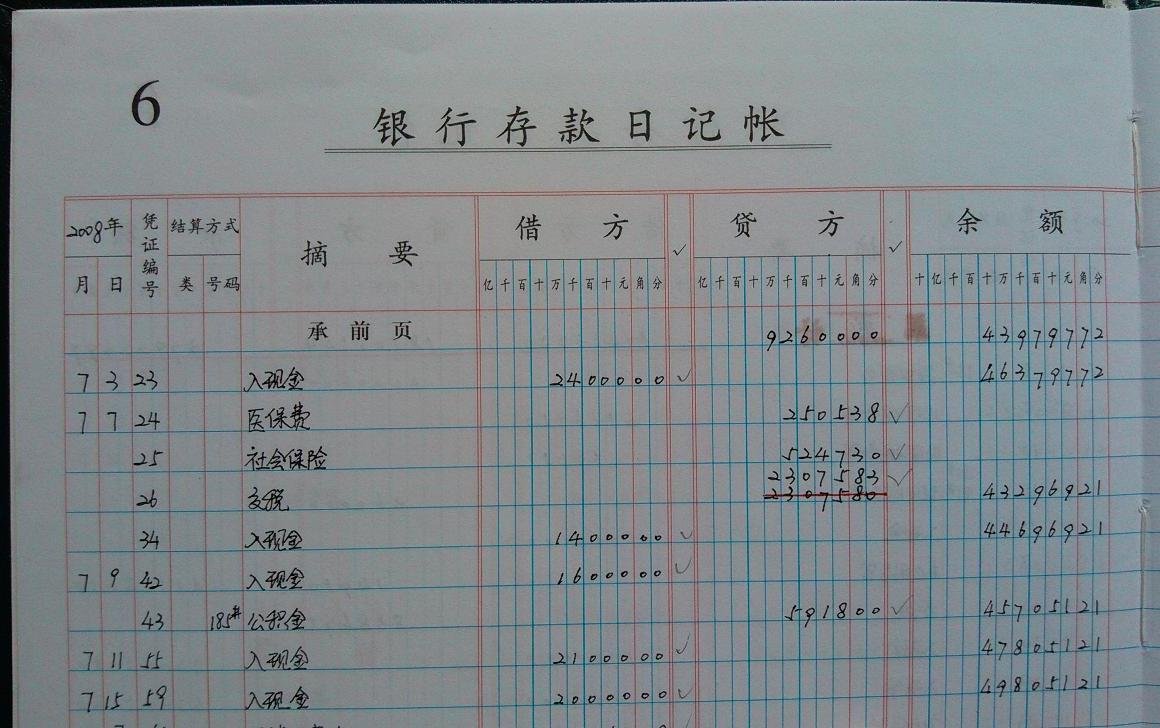 6
银行存款日记帐
2008年 凭证编号 结算方式 摘要 借方 ✓ 贷方 ✓ 余额
月 日 类 号码 亿千百十万千百十元角分 亿千百十万千百十元角分 十亿千百十万千百十元角分
承前页 9260000 43979772
7 3 23 入现金 2400000 ✓ 46379772
7 7 24 医保费 250538 ✓
25 社会保险 524730 ✓
2307583 ✓
26 交税 2307580 43296921
34 入现金 1400000 ✓ 44696921
7 9 42 入现金 1600000 ✓
43 185# 公积金 591800 ✓ 45705121
7 11 55 入现金 2100000 ✓ 47805121
7 15 59 入现金 2000000 ✓ 49805121